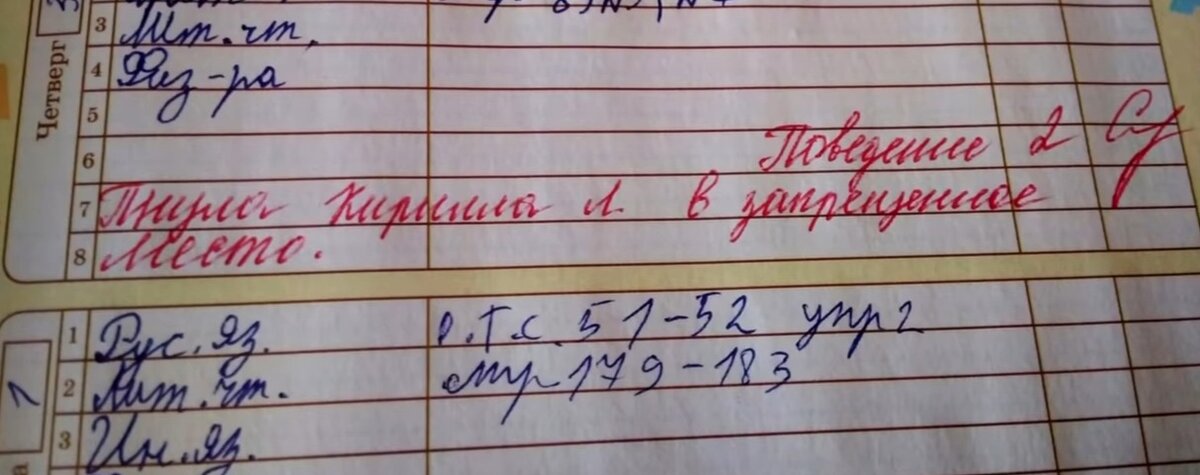 Четверг
3 Лит. чт.
4 Физ-ра
5
6 Поведение 2
7 Пнула Кирилла Л. в запрещенное
8 место.
1 Рус. яз. р.т.с. 51-52 упр 2
2 Лит. чт. стр 179-183
3 Ин. яз.